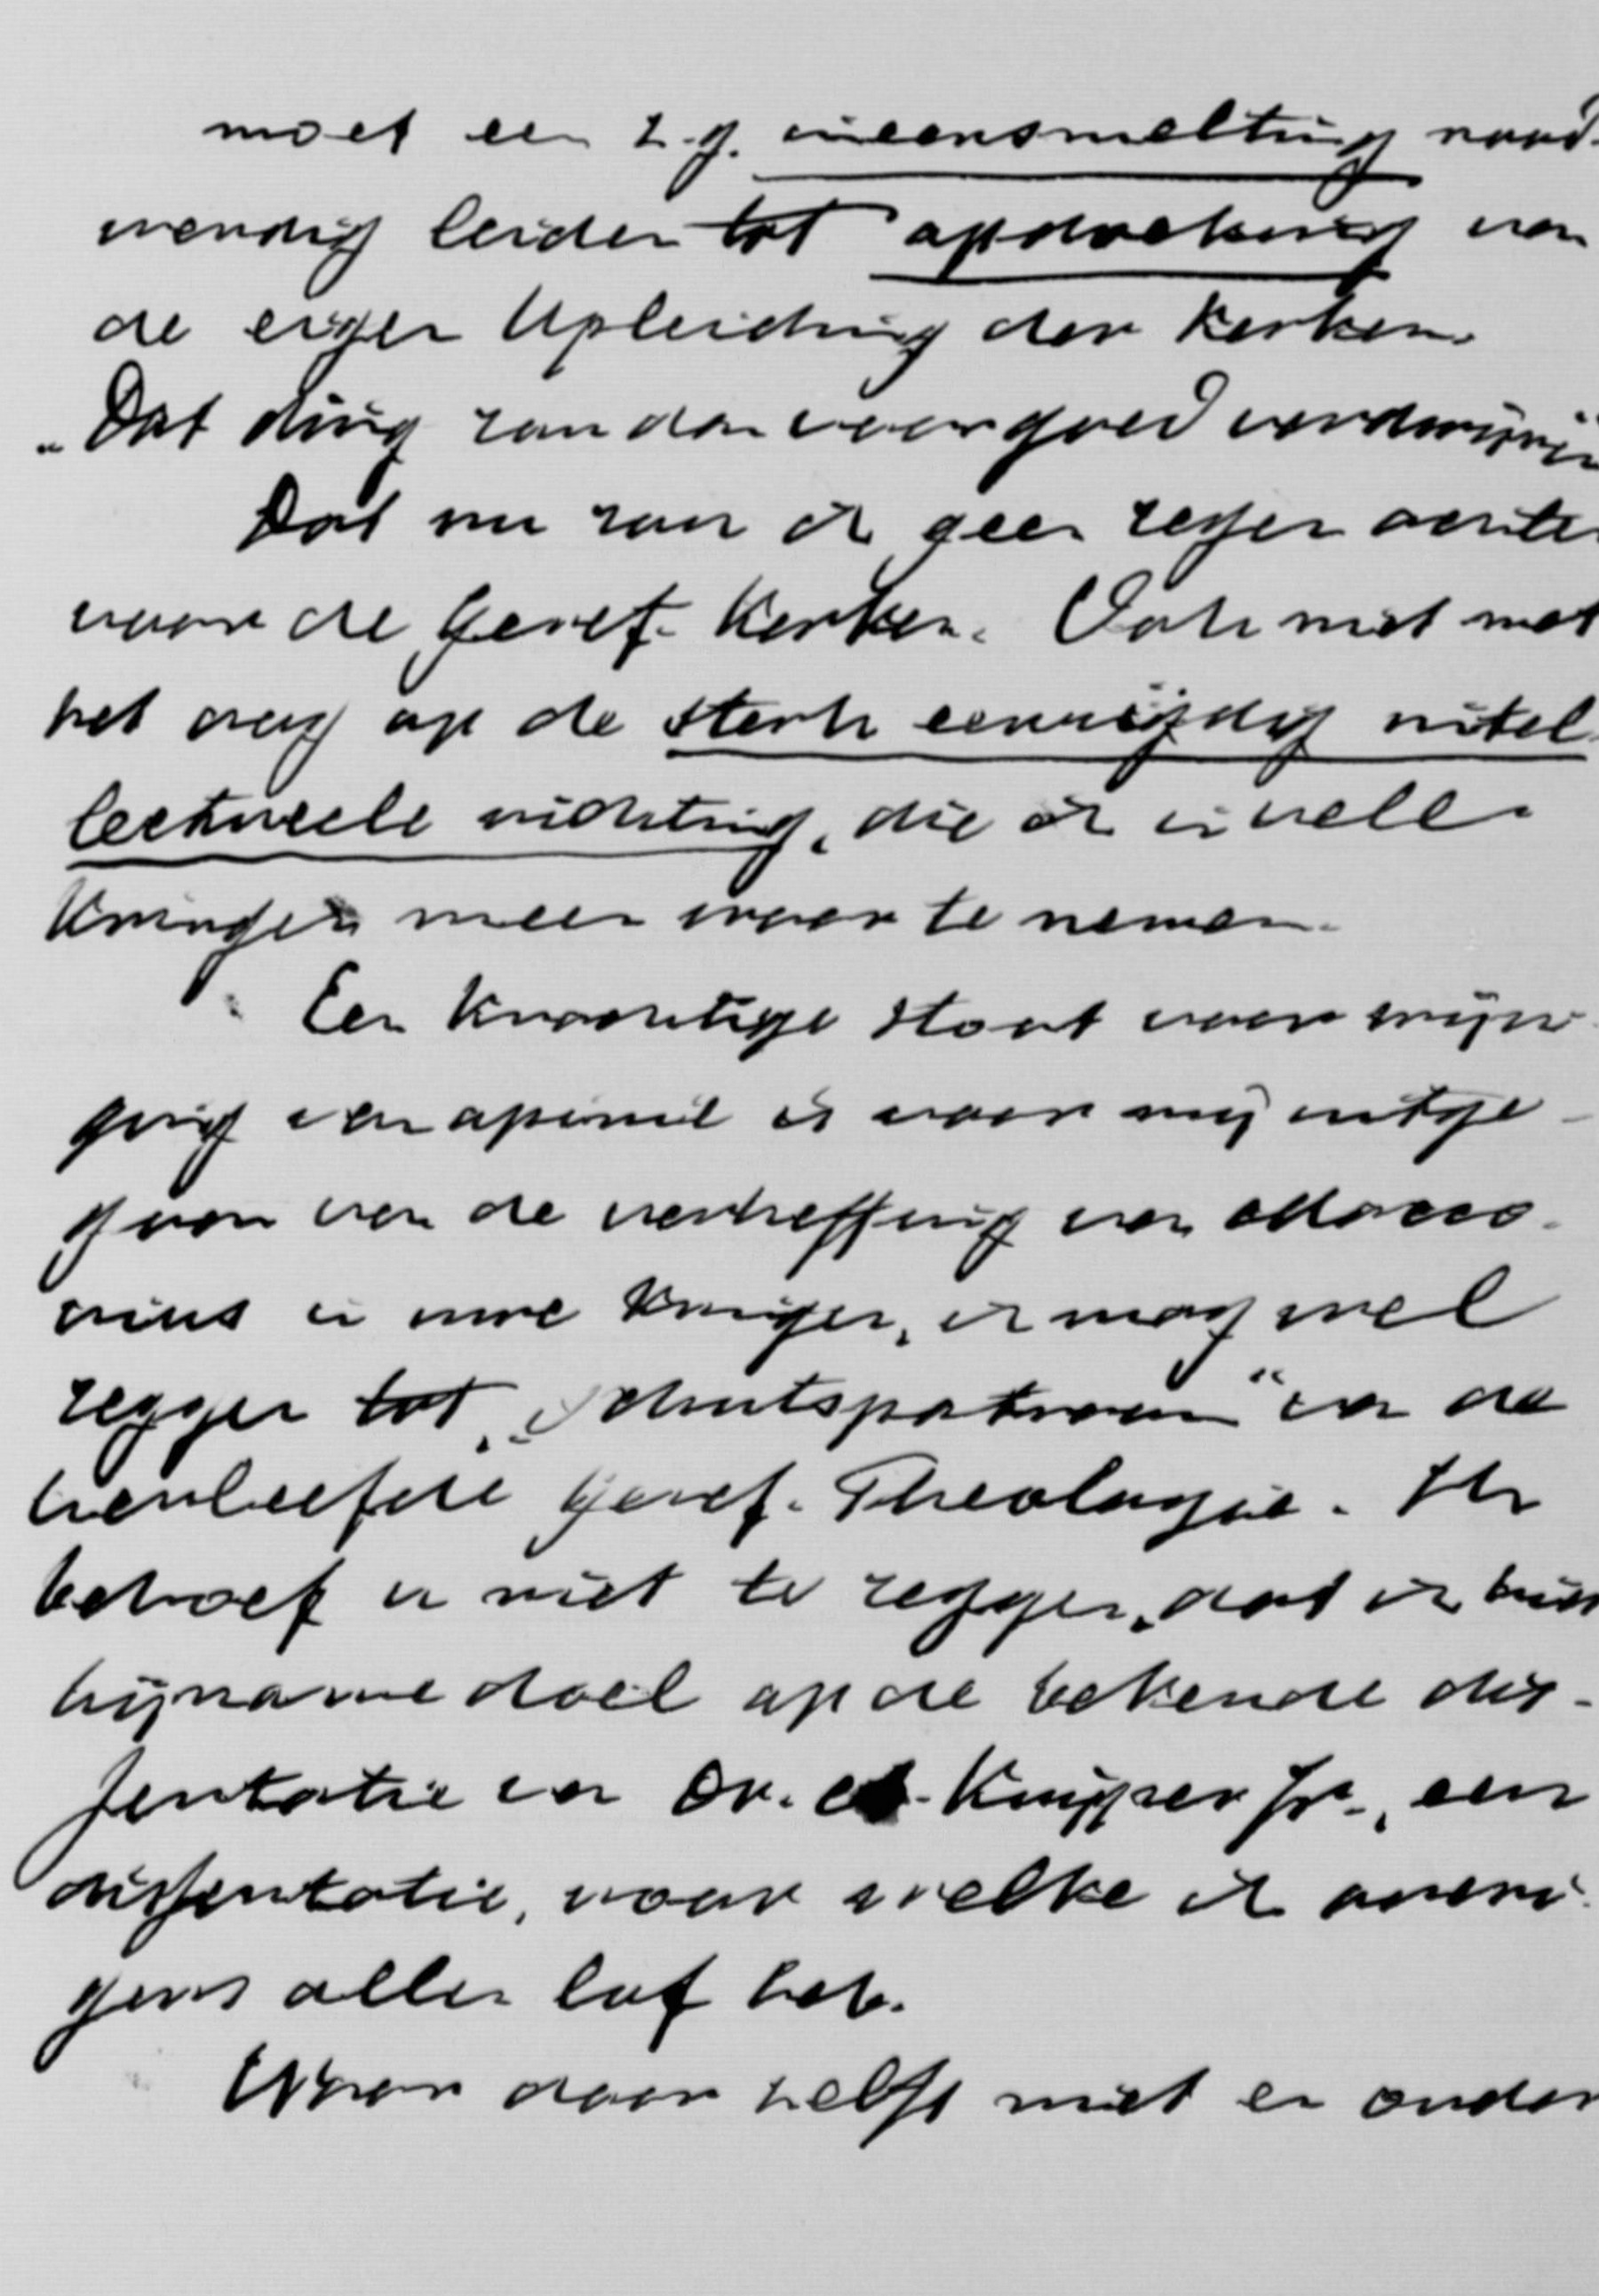 moet een z.g. ineensmelting nood-
wendig leiden tot opdoeking van
de eigen Opleiding der Kerken.
„Dat ding zou dan voor goed verdwijnen
Dat nu zou ik geen zegen achten
voor de Geref. Kerken. Ook niet met
het oog op de sterk eenzijdig intel-
lectueele richting, die ik in uwe
Kringen meen waar te nemen.
Een krachtige stoot voor wijzi-
ging van opinie is voor mij uitge-
gaan van de verheffing van Macco-
vius in uwe Kringen, ik mag wel
zeggen tot „Schutspatroon" van de
herleefde Geref. Theologie. Ik
behoef u niet te zeggen, dat ik hier
bijname doel op de bekende dis-
sertatie van Dr. A. Kuyper Jr., een
dissertatie, voor welke ik overi-
gens allen lof heb.
Waar daar zelfs niet er onder